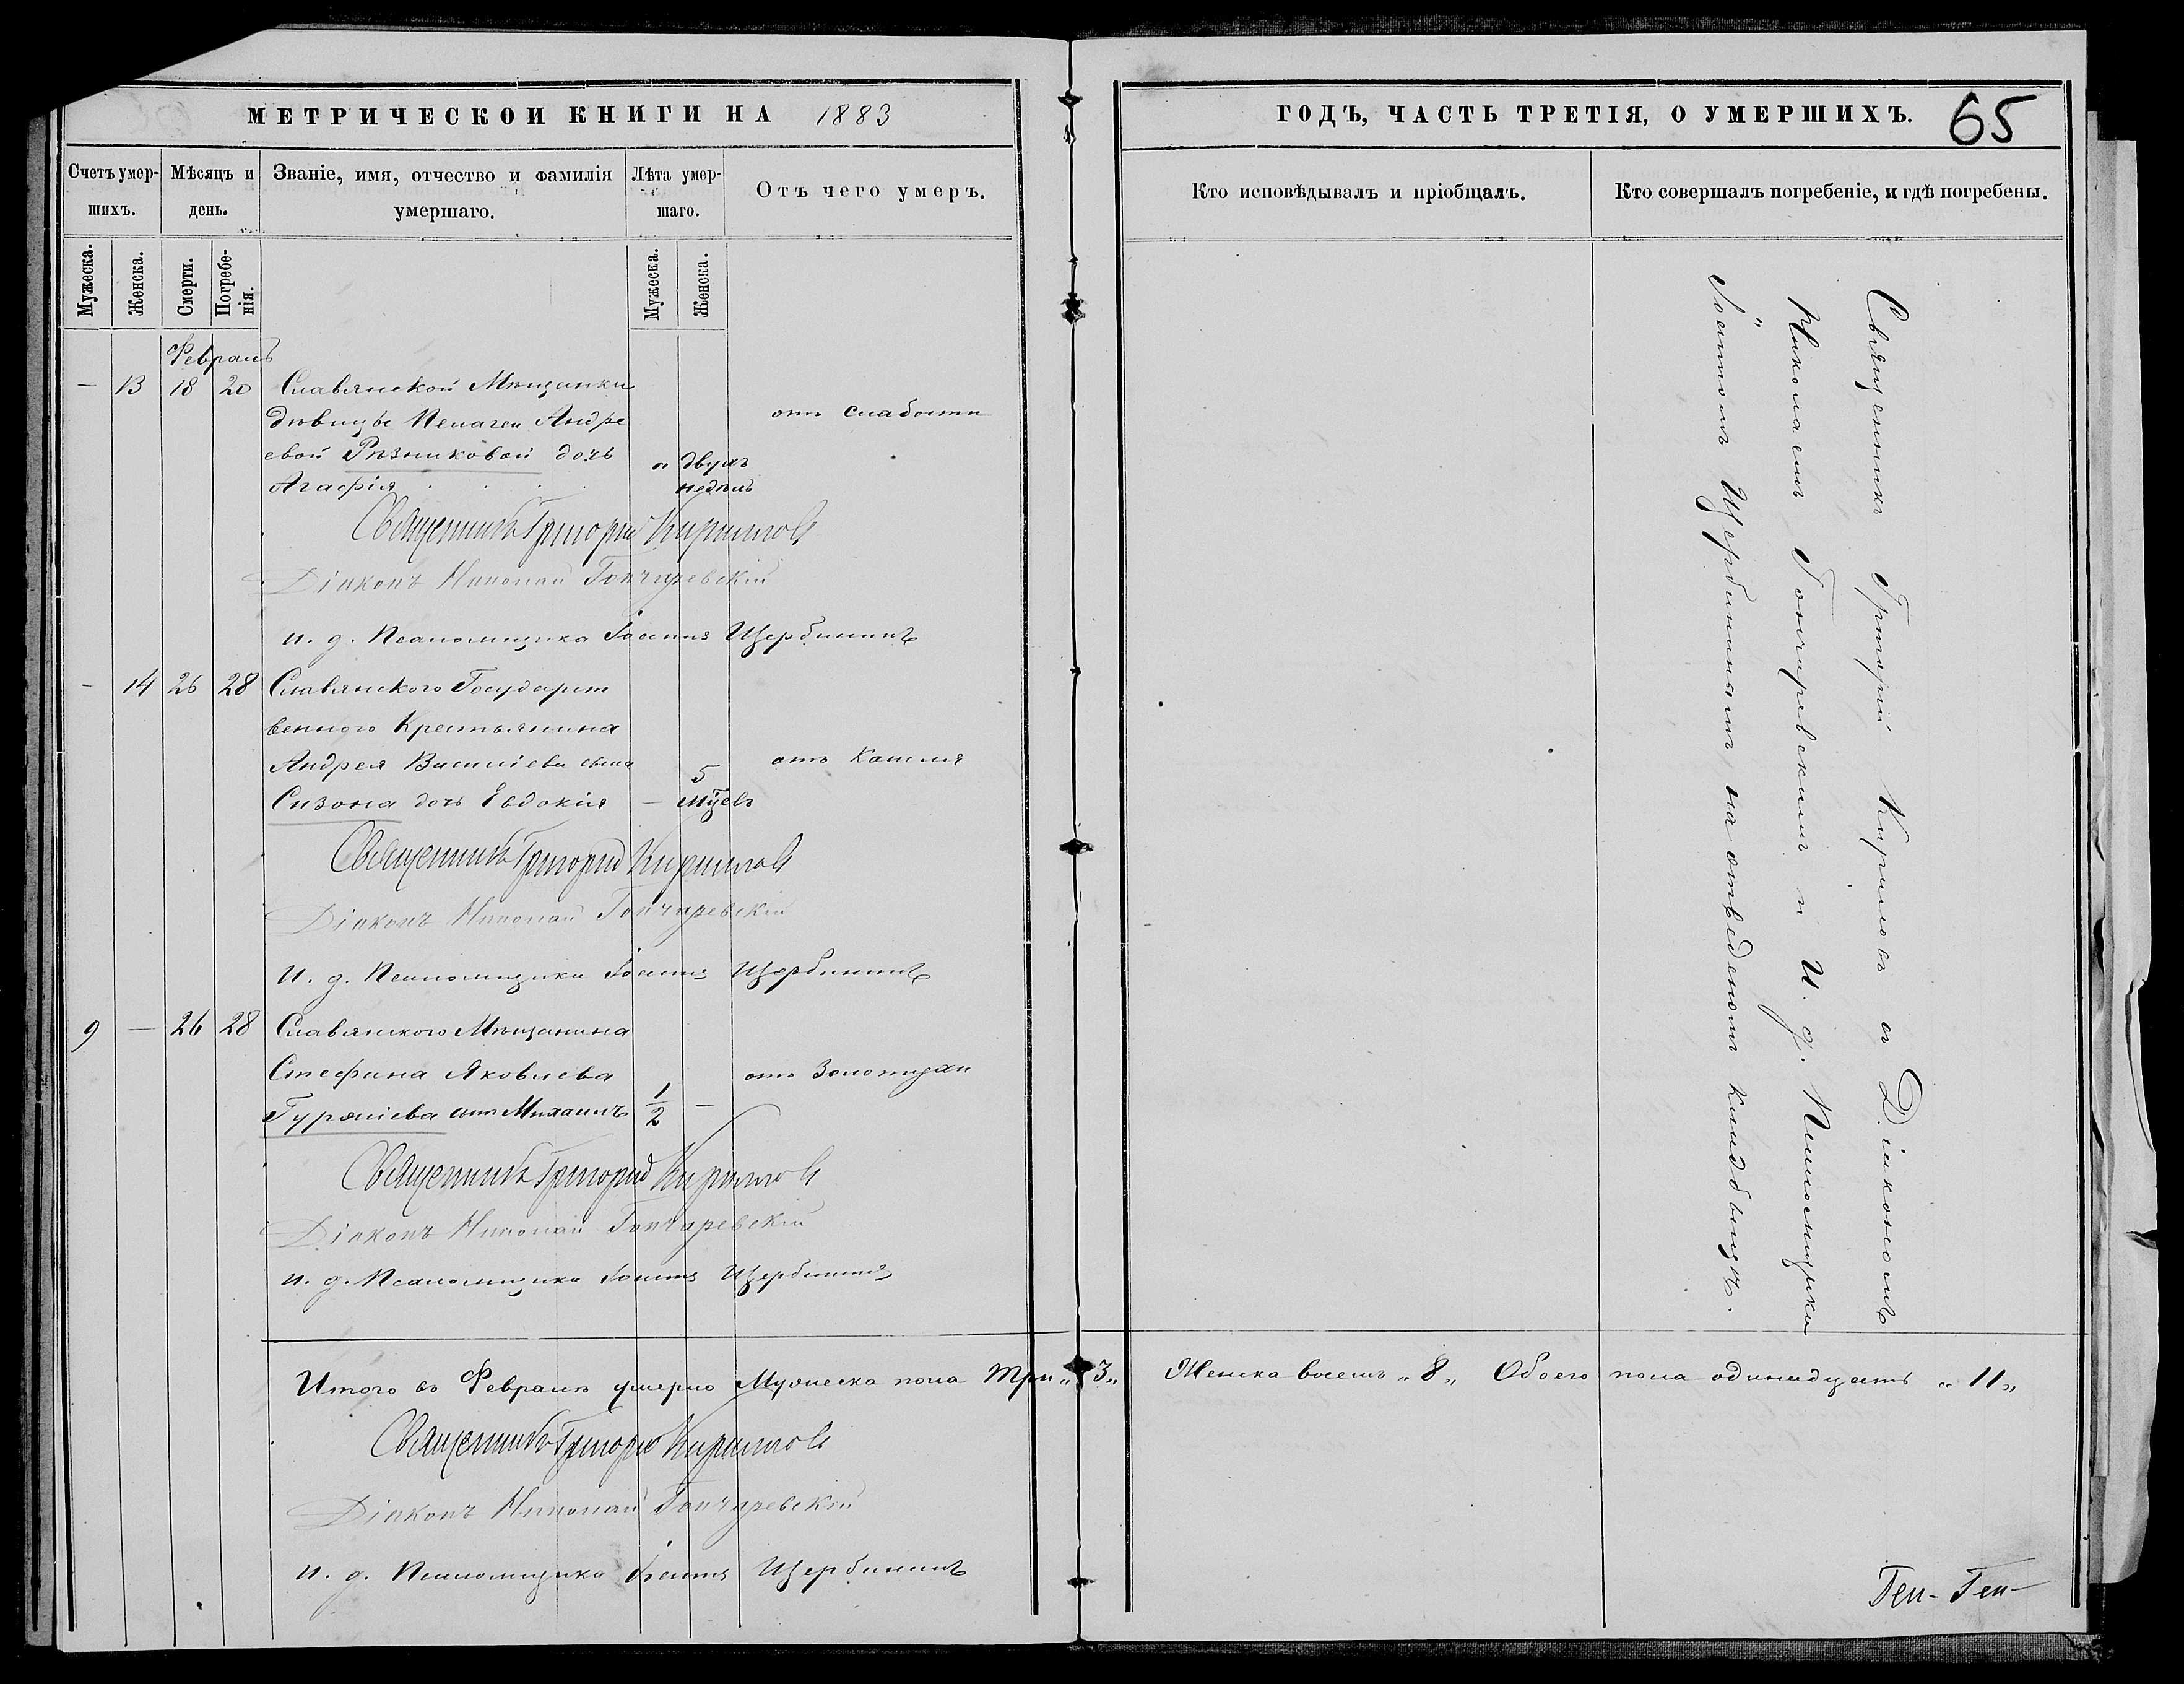 МЕТРИЧЕСКОЙ КНИГИ НА 1883
Счетъ умер-
шихъ.
Мѣсяцъ и
день.
Званіе, имя, отчество и фамилія
умершаго.
Лѣта умер-
шаго.
Отъ чего умеръ.
Мужеска.
Женска.
Смерти.
Погребе-
нія.
Мужеска.
Женска.
Февраль
— 13 18 20 Славянской Мѣщанки
дѣвицы Пелагеи Андре
отъ слабости
евой Рѣзниковой дочь
„ двухъ
Агафія
недѣль
Священникъ Григорій Кириловъ
Діаконъ Николай Гончаревскій
И. д. Псаломщика Іоаннъ Щербининъ
— 14 26 28 Славянского Государст
венного Крестьянина
Андрея Василіева сына
5
отъ Кашля
Сизона дочь Евдокія — мцевъ
Священникъ Григорій Кириловъ
Діаконъ Николай Гончаревскій
И. д. Псаломщика Іоаннъ Щербининъ
9 — 26 28 Славянского Мѣщанина
Стефана Яковлева
отъ Золотухи
сынъ Михаилъ 1/2 —
Священникъ Григорій Кириловъ
Діаконъ Николай Гончаревскій
И. д. Псаломщика Іоаннъ Щербининъ
Итого въ Февралѣ умерло Мужеска пола Три „3„ Женска восемь „8„ Обоего пола одинадцать „11„
Священникъ Григорій Кириловъ
Діаконъ Николай Гончаревскій
И. д. Псаломщика Іоаннъ Щербининъ
ГОДЪ, ЧАСТЬ ТРЕТІЯ, О УМЕРШИХЪ.
65
Кто исповѣдывалъ и пріобщалъ.
Кто совершалъ погребеніе, и гдѣ погребены.
Священникъ Григорій Кириловъ съ Діакономъ
Николаемъ Гончаревскимъ и И. д. Псаломщика
Іоанномъ Щербининымъ, на отведеномъ кладбищѣ.